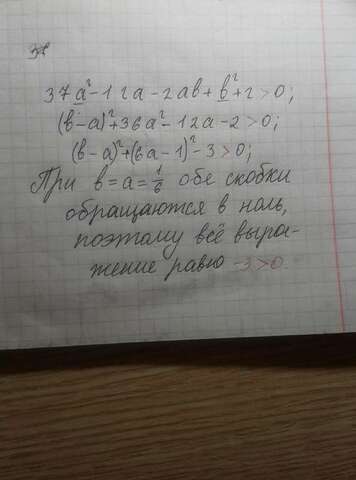 37a²-12a-2ab+b²+2>0;
(b-a)²+36a²-12a-2>0;
(b-a)²+(6a-1)²-3>0;
При b=a=1/6 обе скобки
обращаются в ноль,
поэтому всё выра-
жение равно -3>0